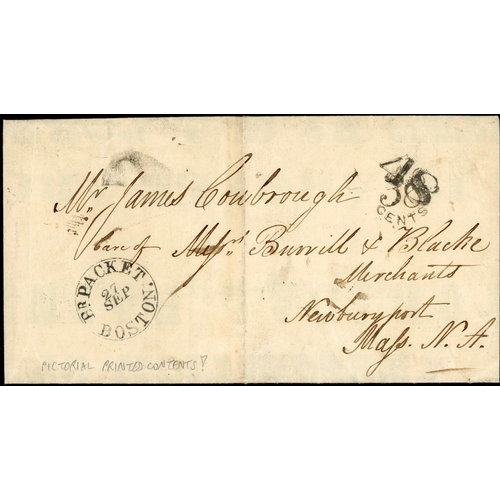 Mr. James Coubrough
Care of Messrs. Burrill & Blacke
Merchants
Newburyport
Mass. N. A.
CENTS
Br PACKET 'NOT
27
SEP
BOSTON
PICTORIAL PRINTED CONTENTS!